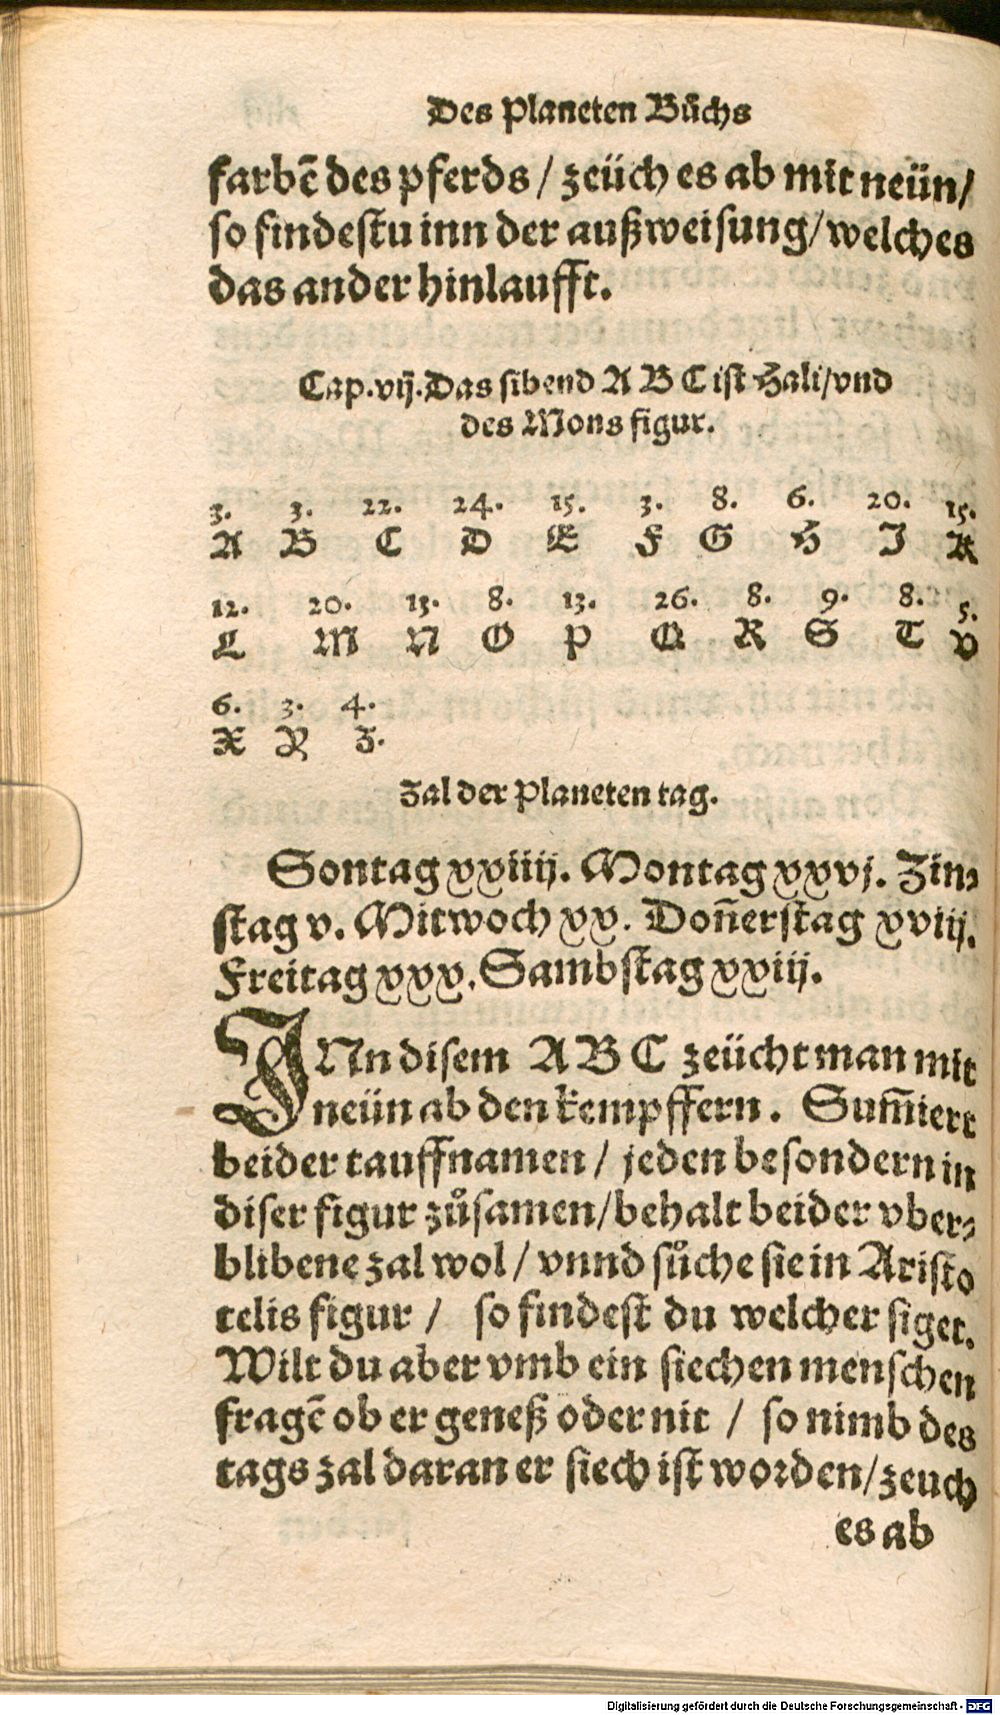 Des Planeten Buͦchs
farbẽ des pferds / zeüch es ab mit neün/
so findestu inn der außweisung/welches
das ander hinlaufft.
Cap.vij.Das sibend A B C ist Hali/vnd
des Mons figur.
3. 3. 22. 24. 15. 3. 8. 6. 20. 15.
A B C D E F G H I K
12. 20. 15. 8. 13. 26. 8. 9. 8. 5.
L M N O P Q R S T V
6. 3. 4.
X Y Z.
Zal der Planeten tag.
Sontag xxiiij. Montag xxvj. Zin⸗
stag v. Mitwoch xx. Doñerstag xviij.
Freitag xxx. Sambstag xxiij.
INn disem A B C zeücht man mit
neün ab den kempffern. Sum̃iere
beider tauffnamen / jeden besondern in
diser figur zuͦsamen/behalt beider vber⸗
blibene zal wol / vnnd suͦche sie in Aristo
telis figur / so findest du welcher siget.
Wilt du aber vmb ein siechen menschen
fragẽ ob er geneß oder nit / so nimb des
tags zal daran er siech ist worden/zeuch
es ab
Digitalisierung gefördert durch die Deutsche Forschungsgemeinschaft - DFG